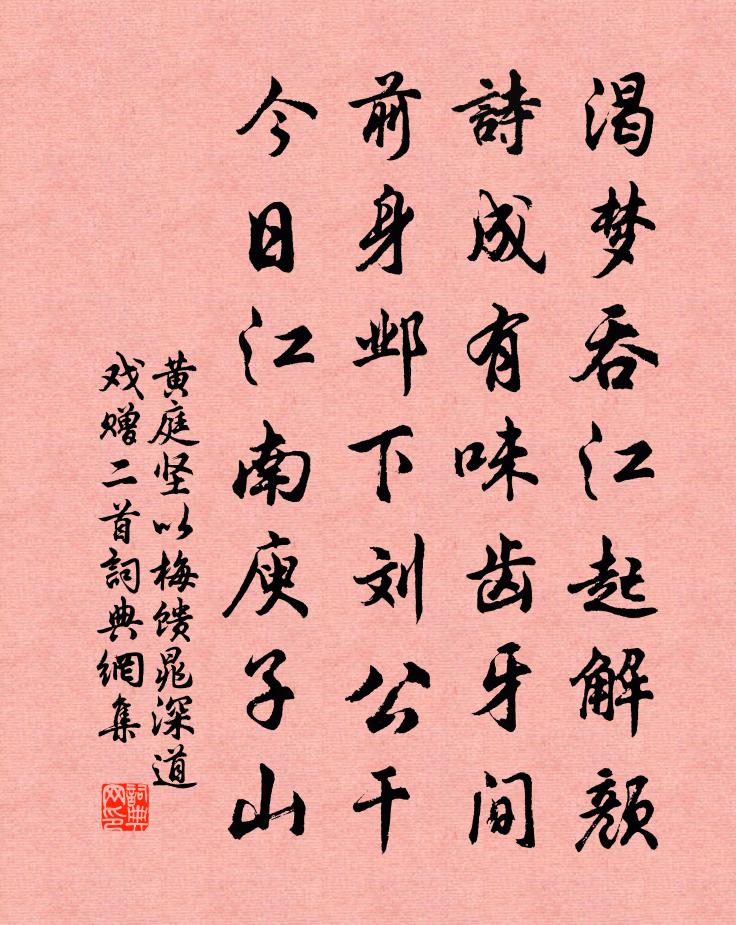 渴梦吞江起解颜
詩成有味齿牙间
前身邺下刘公干
今日江南庾子山
黄庭坚以梅馈晁深道
戏赠二首詞典網集
詞典网印